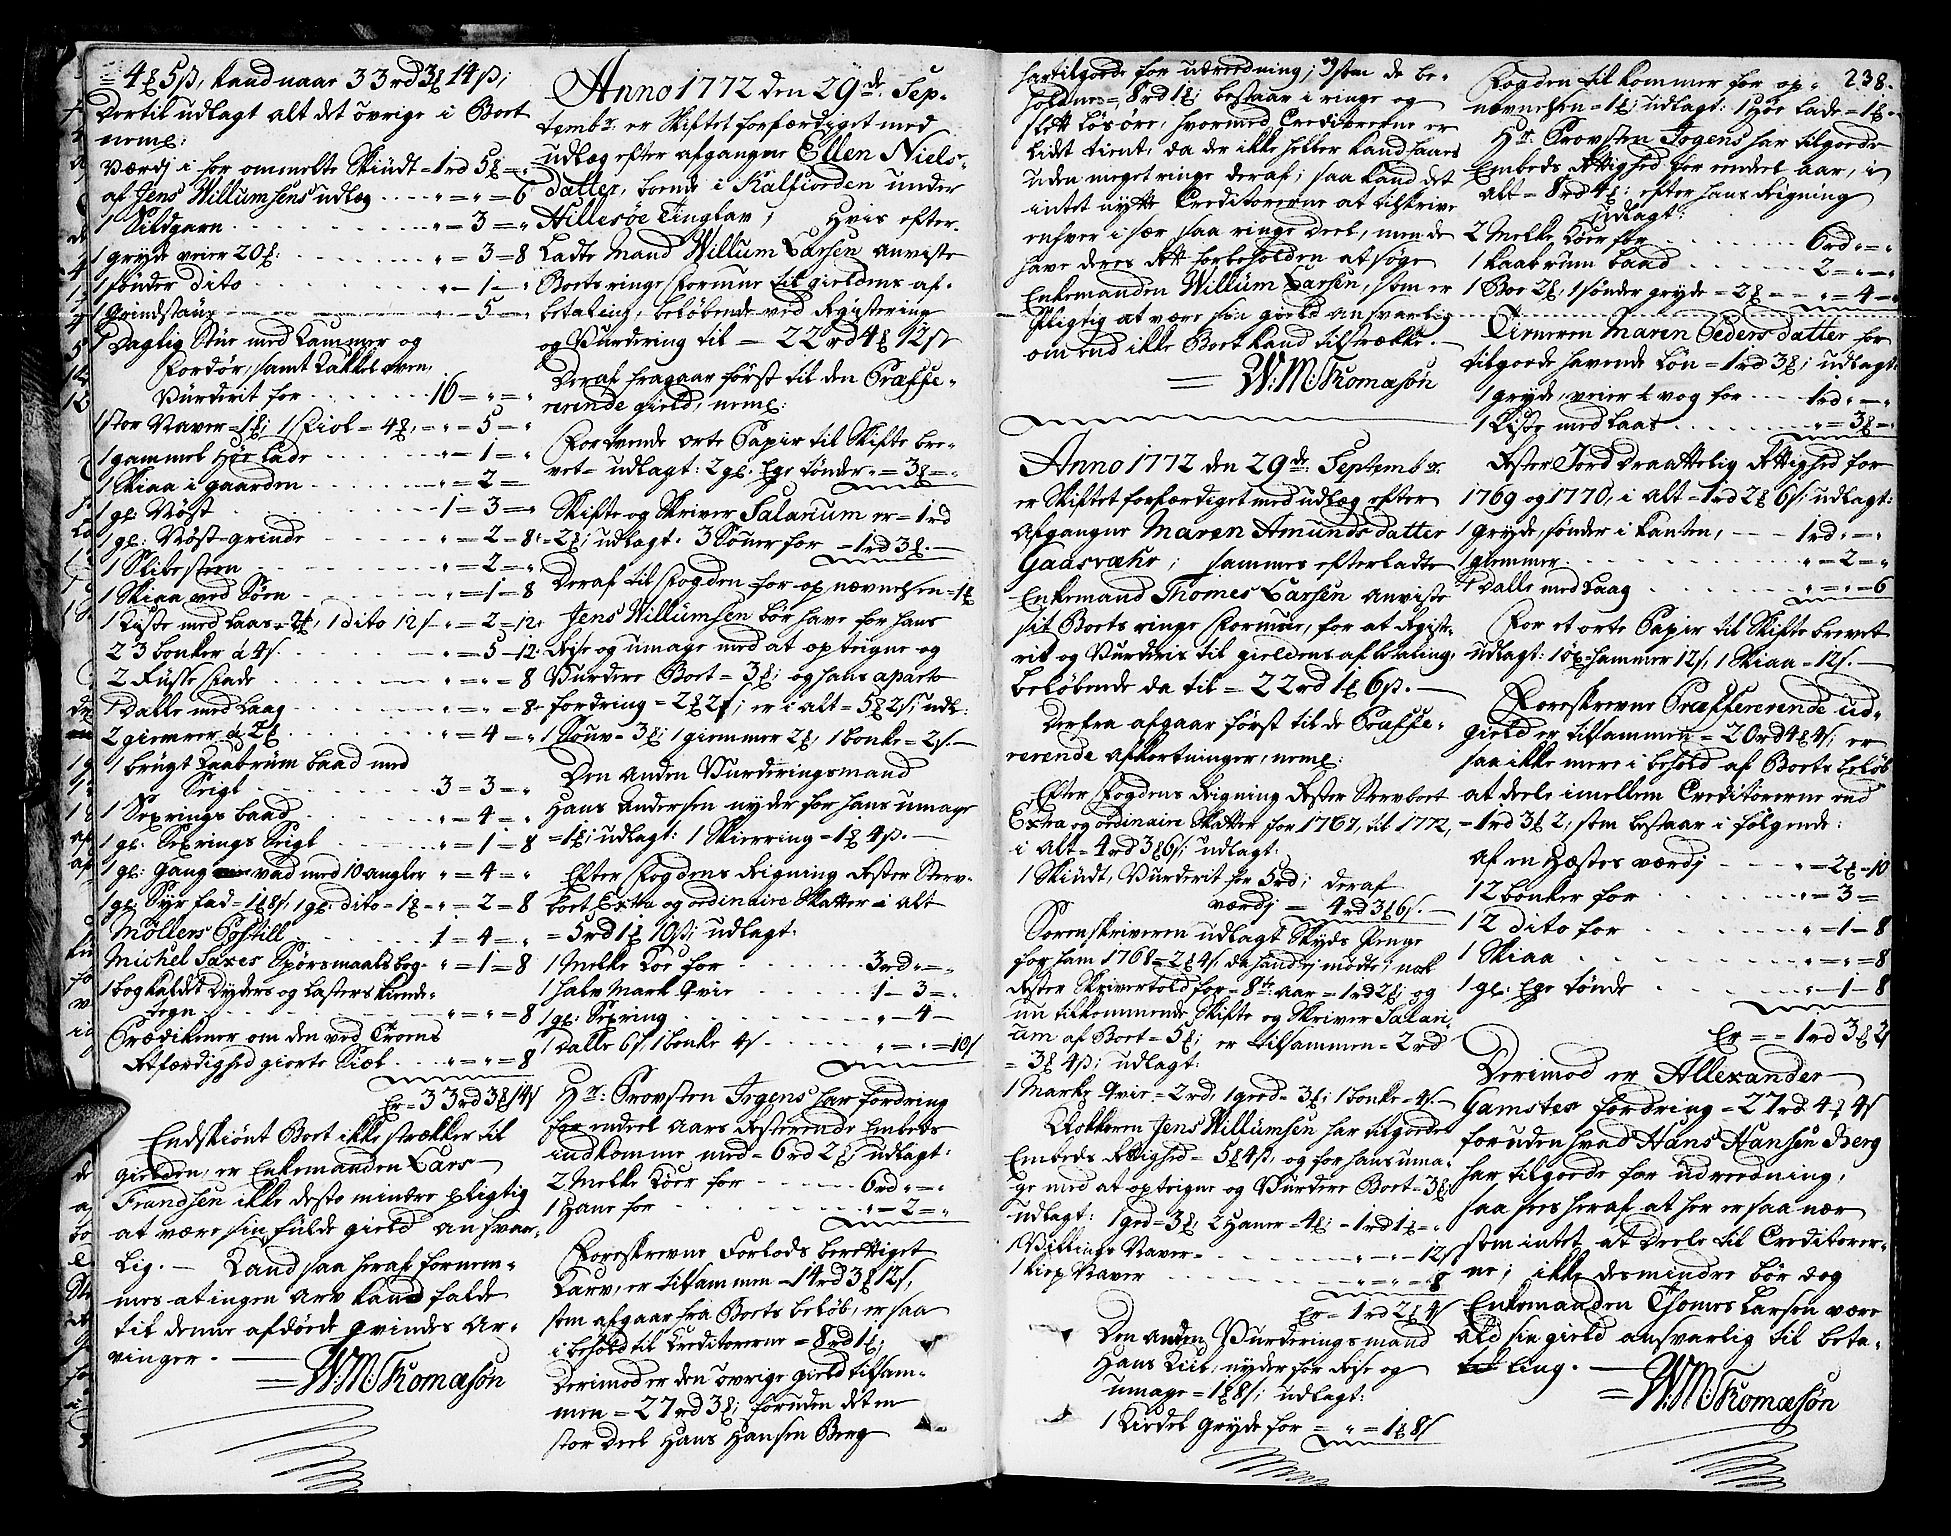 = 4 ℔ 5 ß, kand naar 33 rd 3 ℔ 14 ß;
Dertil udlagt alt det øvrige i Boet
neml:
Værdj i for ommelte Skiudt = 1 rd 5 ℔ = "
af Jens Willumsens udlæg ---- " = " = 6
1 Sildgarn ---- " = 3 = "
1 gryde veier 20 ℔: ---- " = 3 = 8
1 sønder dito ---- " = 1 = "
1 Grindstaur ---- " = 5 = "
1 Daglig Stue med Kammer og
Fordør, samt Kakkel oven,
Vurderit for ---- 16 = " = "
1 stor Naver = 1 ℔; 1 fiol = 4 ℔, - " = 5 = "
1 gammel Høe lade ---- " = 1 = "
1 Skiaa i gaarden ---- " = 2 =
1 gl: Nøst ---- 1 = 3 = "
1 gl: Nøst-grinde ---- " = 2 = 8
1 Slibesteen ---- " = 2 = "
1 Skiaa ved Søen ---- " = 1 = 8
1 Kiste med Laas = 2 ℔, 1 dito 12 ß - " = 2 = 12
23 bonker à 4 ß ---- " = 5 = 12
2 Fusse fade ---- " = " = 8
1 Dalle med Laag ---- " = " = 8
2 giemrer à 2 ℔ ---- " = 4 = "
1 brugt Kaabrum baad med
Seigl ---- 3 = 3 = "
1 Sexrings baad ---- " = 4 = "
1 gl: Sexrings Seigl ---- " = 1 = 8
1 gl: Gang vad med 10 angler " = 4 = "
1 gl: Syr fad = 1 ℔ 8 ß, 1 gl: dito = 1 ℔ - " = 2 = 8
Møllers Postill ---- 1 = 4 = "
Michel Saxes Spørsmaals bog - " = 1 = 8
1 bog kaldet Dyders og Lasters kiende-
tegn ---- " = " = 8
Prædikener om den ved Troens
Retfærdighed giorte Siæl ---- " = " = 8
Er = 33 rd 3 ℔ 14 ß
Endskiønt Boet ikke strækker til
gielden, er Enkemanden Lars
Frandsen ikke desto mindre pligtig
at være sin fulde gield ansvar-
lig. — Kand saa heraf fornem-
mes at ingen Arv kand falde
til denne afdøde qvindes Ar-
vinger. —
= W. M. Thomasøn
Anno 1772 den 29de Sep-
tembr. er Skiftet forfærdiget med
udlæg efter afgangne Ellen Niels-
datter, boende i Kalfiorden under
Hillesøe Tinglav; Hvis efter-
ladte Mand Willum Larsen anviste
Boets ringe formue til gieldens af-
betaling, beløbende ved Registering
og Vurdering til = 22 rd 4 ℔ 12 ß
Deraf fragaar først til den Præffe-
rerende gield, neml:
Fordrende orte Papir til Skifte bre-
vet = udlagt: 2 gl. Ege tønder " = 3 ℔ = "
Skifte og Skriver Salarium er = 1 rd
= 2 ℔; udlagt. 3 Souer for = 1 rd 3 ℔.
Deraf til Fogden for op nævnelsen = 1 ℔
Jens Willumsen bør have for hans
Reise og umage med at opteigne og
Vurdere Boet = 3 ℔; og hans aparte
fordring = 2 ℔ 2 ß; er i alt = 5 ℔ 2 ß; udl:
1 Souv = 3 ℔; 1 giemmer 2 ℔, 1 bonke = 2 ß.
Den anden Vurderingsmand
Hans Andersen nyder for hans umage
= 1 ℔; udlagt: 1 Skierring = 1 ℔ 4 ß.
Efter Fogdens Rigning Rester Sterv-
boet Extra og ordinaire Skatter i alt
= 5 rd 1 ℔ 10 ß; udlagt:
1 Melke Koe for ---- 3 rd " = "
1 halv Mark Qvie ---- 1 = 3 = "
1 gl: Sexring ---- " = 4 =
1 Dalle 6 ß, 1 bonke 4 ß ---- " = " = 10 ß
Hr. Provsten Jrgens har fordring
for endeel Aars Resterende Embeds
indkomme med = 6 rd 2 ℔; udlagt:
2 Melke Køer for ---- 6 rd " = "
1 Hane for ---- " = 2 = "
Foreskrevne Forlods berettiget
Kurv, er tilsammen = 14 rd 3 ℔ 12 ß,
som afgaar fra Boets beløb, er saa
i behold til Kreditorerne = 8 rd 1 ℔;
Derimod er den øvrige gield tilsam-
men = 27 rd 3 ℔; foruden det en
stor deel Hans Hansen Berg
har tilgode for udreedning; Som de be-
holdne = 8 rd 1 ℔; bestaar i ringe og
slett løsøre, hvormed Creditorerne er
lidt tient, da der ikke heller kand haves
uden meget ringe deraf; saa kand det
intet nytte Creditorerne at tilskrive
enhver i sær saa ringe deel, men de
have deres Ret forbeholden at søge
Enkemanden Willum Larsen, som er
Pligtig at være sin gield ansvarlig
om end ikke Boet kand tilstrække. -
= W. M. Thomasøn
Anno 1772 den 29de Septembr.
er Skiftet forfærdiget med udlæg efter
Afgangne Maren Amunds datter
Gaasvahr; sammes efterladte
Enkemand Thomes Larsen anviste
sit Boets ringe formue, for at Registe-
rit og Vurderis til gieldens afbetaling,
beløbende da til = 22 rd 1 ℔ 6 ß. -
Derfra afgaar først til de Præffe-
rerende afkortninger, neml:
Efter Fogdens Rigning Rester Stervboet
Extra og ordinaire Skatter for 1767, til 1772,
i alt = 4 rd 3 ℔ 6 ß; udlagt:
1 Skiudt, Vurderit for 5 rd; deraf
værdj = 4 rd 3 ℔ 6 ß. -
Sorenskriveren udlagt Skyds Penge
for ham 1768 = 2 ℔ 4 ß, da hand ej mødte; nok
Rester Skrivertold for = 8te: Aar = 1 rd 2 ℔, og
nu tilkommende Skifte og Skriver Salari-
um af Boet = 5 ℔; er tilsammen = 2 rd
= 3 ℔ 4 ß; udlagt:
1 Marke Qvie = 2 rd, 1 geed = 3 ℔; 1 bonke = 4 ß. -
Klokkeren Jens Willumsen har tilgode
Embeds Rettighed = 5 ℔ 4 ß, og for hans uma-
ge med at opteigne og Vurdere Boet = 3 ℔,
udlagt: 1 ged = 3 ℔, 2 Haner = 4 ℔; = 1 rd 1 ℔ = "
1 Villings Naver - ---- " = " = 12 ß
1 kiep Naver ---- " = " = 8
Er = 1 rd 2 ℔ 4 ß
Den anden Vurderings mand
Hans Kiil, nyder for Reise og
umage = 1 ℔ 8 ß; udlagt:
1 Kiedel Gryde for = " = 1 ℔ 8 ß
238.
Fogden til kommer for op-
nævnelsen = 1 ℔; udlagt: 1 Høe lade = 1 ℔ -
Hr: Provsten Jrgens har tilgode
Embeds Rettighed for endeel aar, i
alt = 8 rd 4 ℔; efter hans Rigning
udlagt:
2 Melke Køer for ---- 6 rd " = "
1 Kaabrum baad ---- 2 = " = "
1 Boe 2 ℔, 1 sønder gryde = 2 ℔ = - " = 4 = "
Tieneren Maren Peders datter for
tilgode havende Løn = 1 rd 3 ℔; udlagt:
1 gryde, veier ½ vog for ---- 1 rd " = "
1 Kiste med Laas ---- " = 3 ℔ = "
Rester Jord draattelig Rettighed for
1769 og 1770, i alt = 1 rd 2 ℔ 6 ß. udlagt:
1 gryde, sønder i kanten, ---- 1 rd " = "
1 giemmer ---- " = 2 = "
1 Dalle med Laag ---- " = " = 6
For et orte Papir til Skifte brevet
udlagt: 1 øx-hammer 12 ß, 1 Skiaa = 12 ß. -
Foreskrevne Præffererende ud-
gield er tilsammen = 20 rd 4 ℔ 4 ß; er
saa ikke mere i behold af Boets beløb
at deele imellem Creditorerne end
= 1 rd 3 ℔ 2, som bestaar i følgende:
af en Hæstes værdj ---- " = 2 ℔ = 10
12 bonker for ---- " = 3 =
12 dito for ---- " = 1 = 8
1 Skiaa ---- " = " = 8
1 gl: Ege tønde ---- " = 1 = 8
Er = = 1 rd 3 ℔ 2 ß
Derimod er Allexander
Gamstes fordring = 27 rd 4 ℔ 4 ß
foruden hvad Hans Hansen Berg
har tilgode for udreedning,
saa sees heraf, at her er saa nær
som intet at Deele til Creditorer-
ne; ikke desmindre bør dog
Enkemanden Thomes Larsen være
ald sin gield ansvarlig til beta-
ling. —
= W. M. Thomasøn